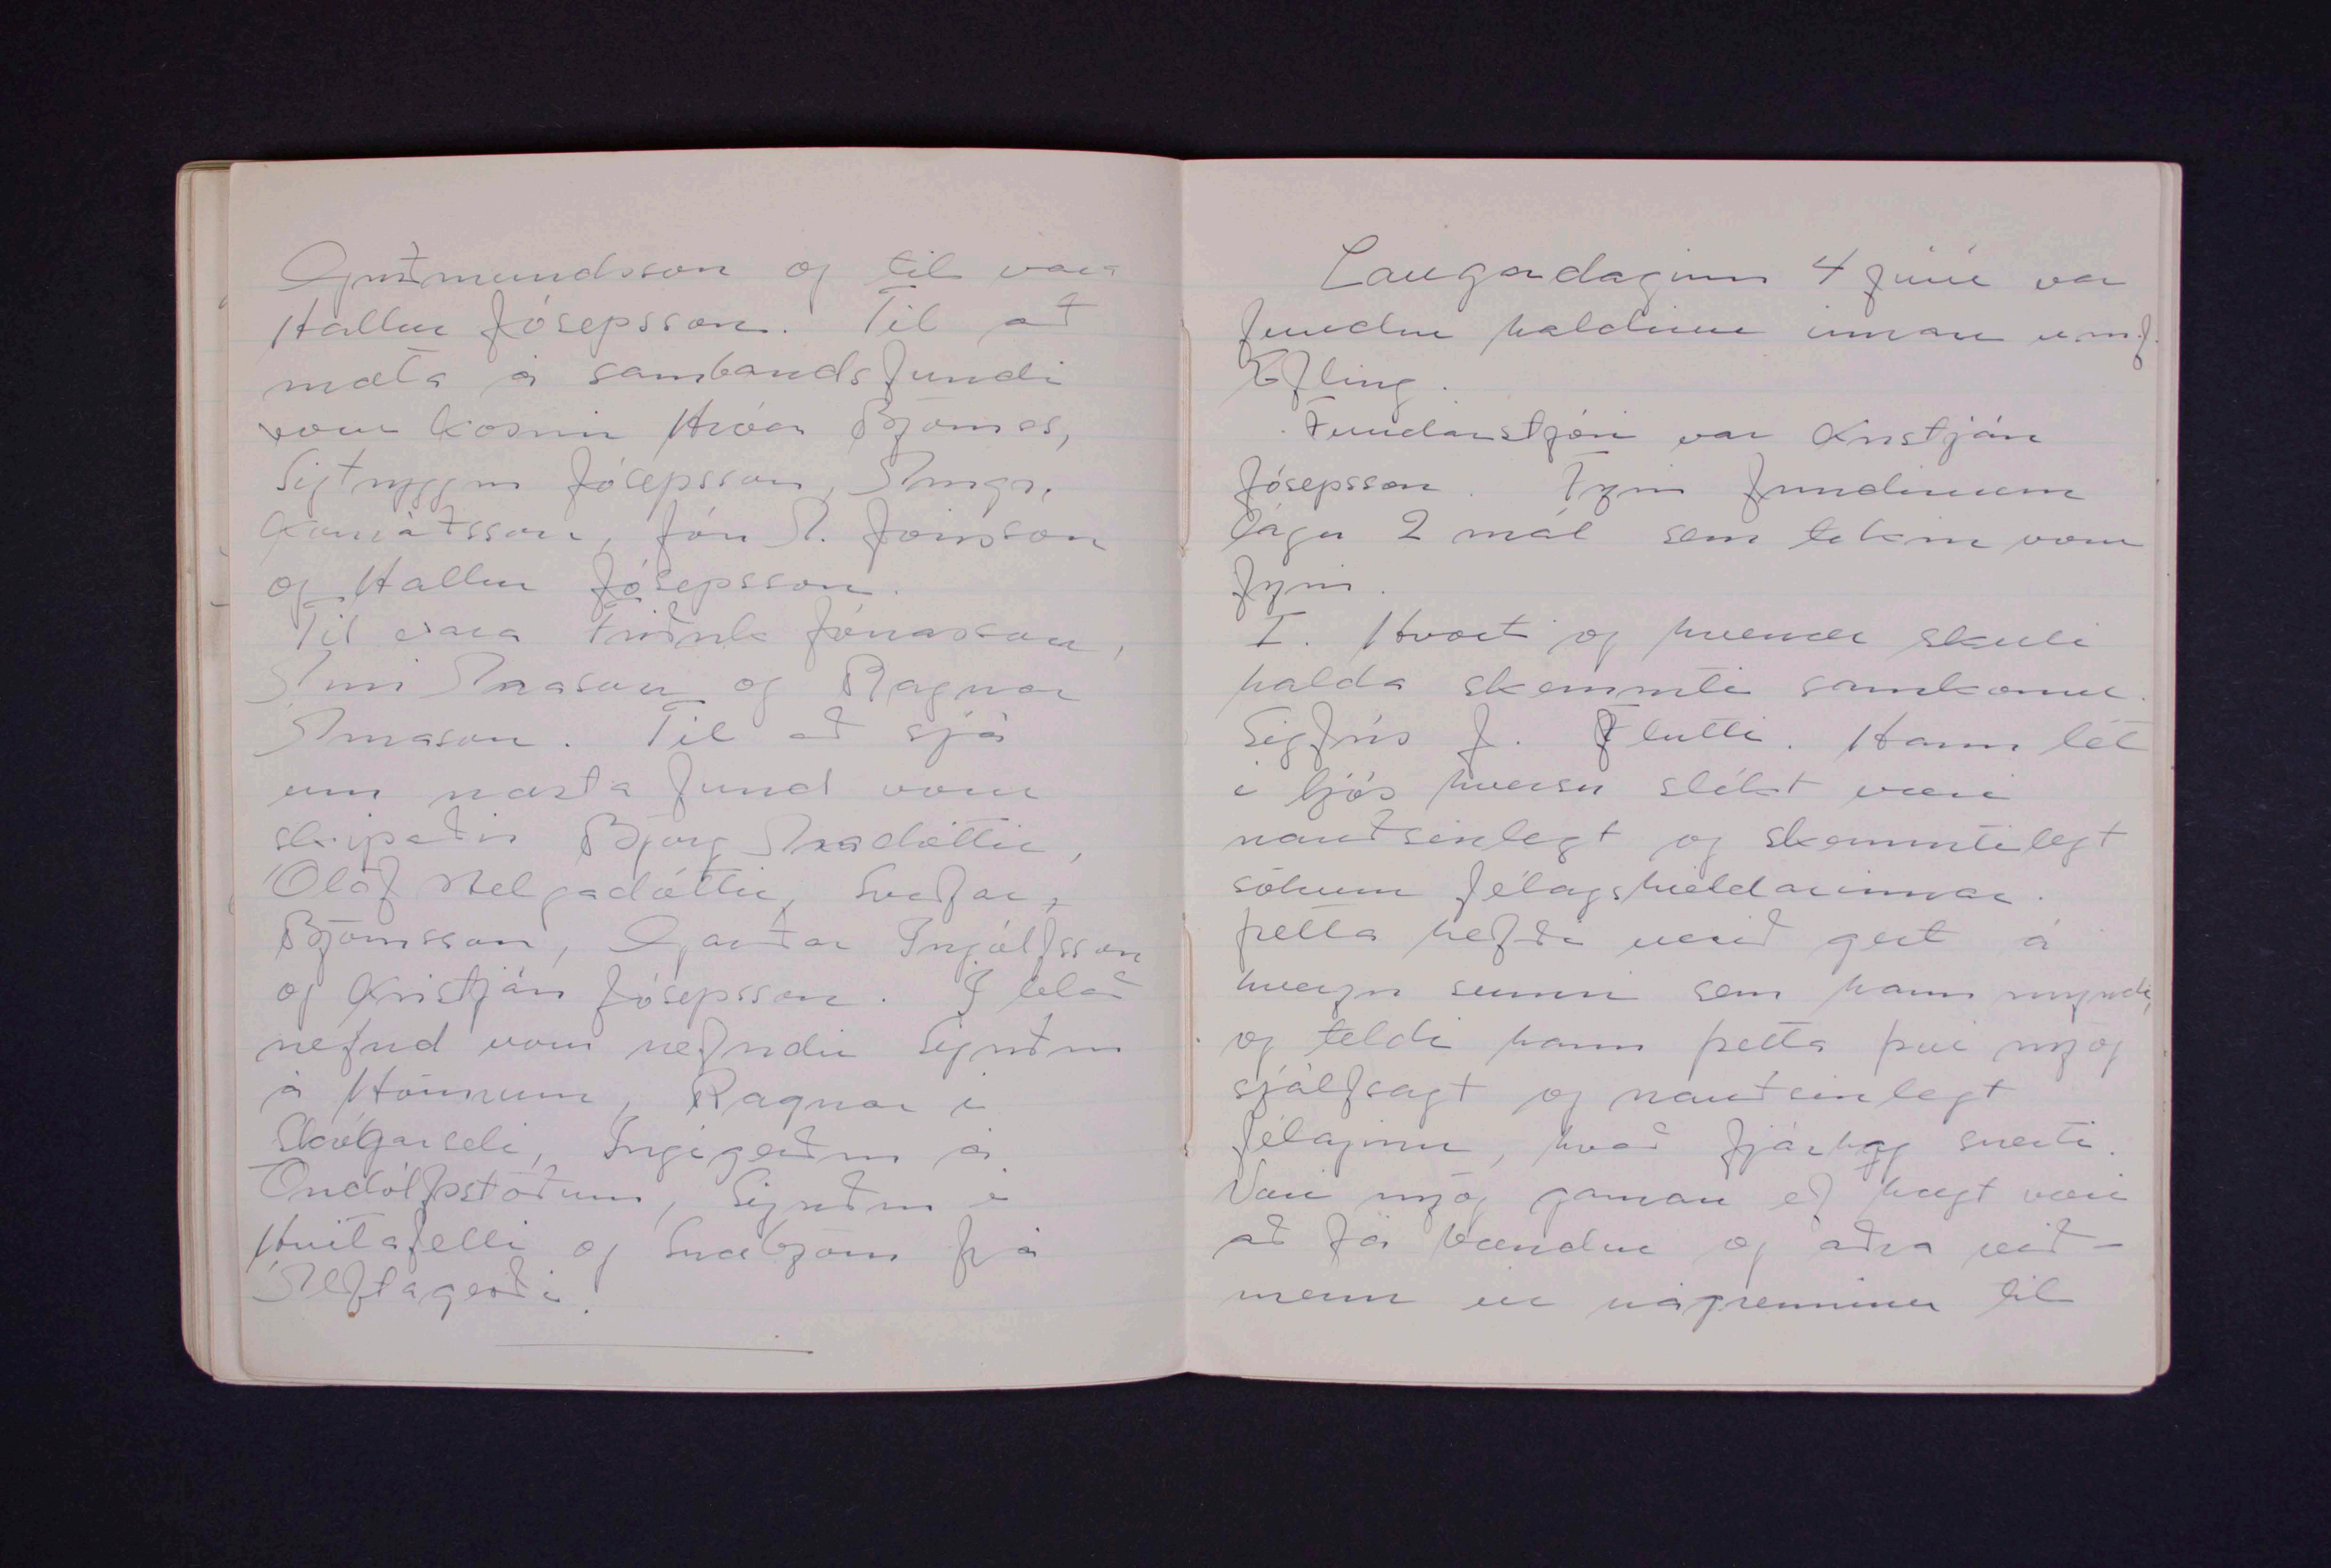 Guðmundsson og til vara
Hallur Jósepsson. Til að
mæta á sambandsfundi
voru kosnir Hróar Björnss,
Sigtryggur Jósepsson, Arngr.
Konráðsson, Jón A. Jónsson
og Hallur Jósepsson.
Til vara Friðrik Jónasson,
Árni Arason og Ragnar
Árnason. Til að sjá
um næsta fund voru
skipaðir Björg Aradóttir,
Ólöf Helgadóttir, Svafar
Björnsson, Garðar Ingólfsson
og Kristján Jósepsson. Í blað
nefnd voru nefndir Sigurður
á Hömrum, Ragnar í
Skógarseli, Ingigerður á
Öndólfsstöðum, Sigurður í
Hvítafelli og Snæbjörn frá
Álftagerði.
Laugardaginn 4 júní var
fundur haldinn innan umf.
Efling.
Fundarstjóri var Kristján
Jósepsson. Fyrir fundinum
lágu 2 mál sem tekin voru
fyrir.
I. Hvort og hvenær skuli
halda skemmti samkomu.
Sigfús J. flutti. Hann lét
í ljós hversu slíkt væri
nauðsinlegt og skemmtilegt
sökum félagsheildarinnar.
þetta hefði verið gert á
hverju sumri sem hann myndi,
og teldi hann þetta því mjög
sjálfsagt og nauðsinlegt
félaginu, hvað fjárhag snerti.
Væri mjög gaman ef hægt væri
að fá bændur og aðra við-
menn úr nágrenninu til